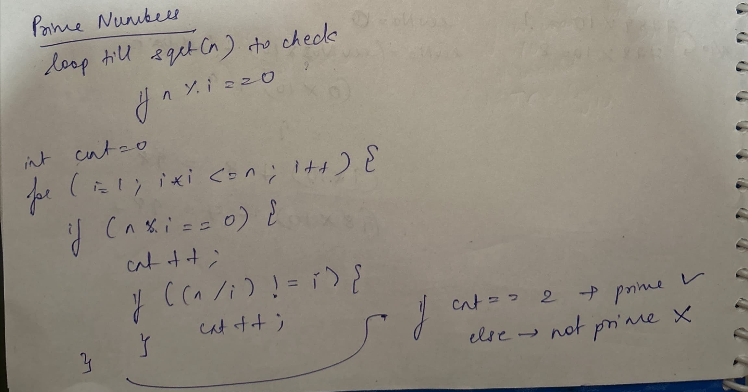 Prime Numbers
loop till sqrt(n) to check
if n % i == 0
int cnt=0
for (i=1; i*i <=n; i++) {
if (n % i == 0) {
cnt ++;
if ((n/i) != i) {
cnt ++;
}
}
if cnt == 2 → prime ✓
else → not prime ✗